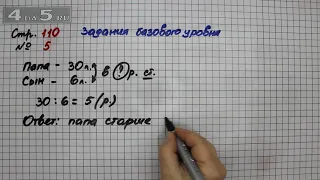 4ALL5.RU
Стр. 110 Задания базового уровня
№ 5
Папа – 30 л.
Сын – 6 л. в ? р. ст.
30 : 6 = 5 (р.)
Ответ: папа старше